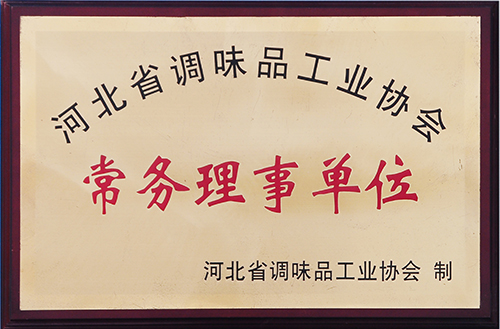 河北省调味品工业协会
常务理事单位
河北省调味品工业协会 制